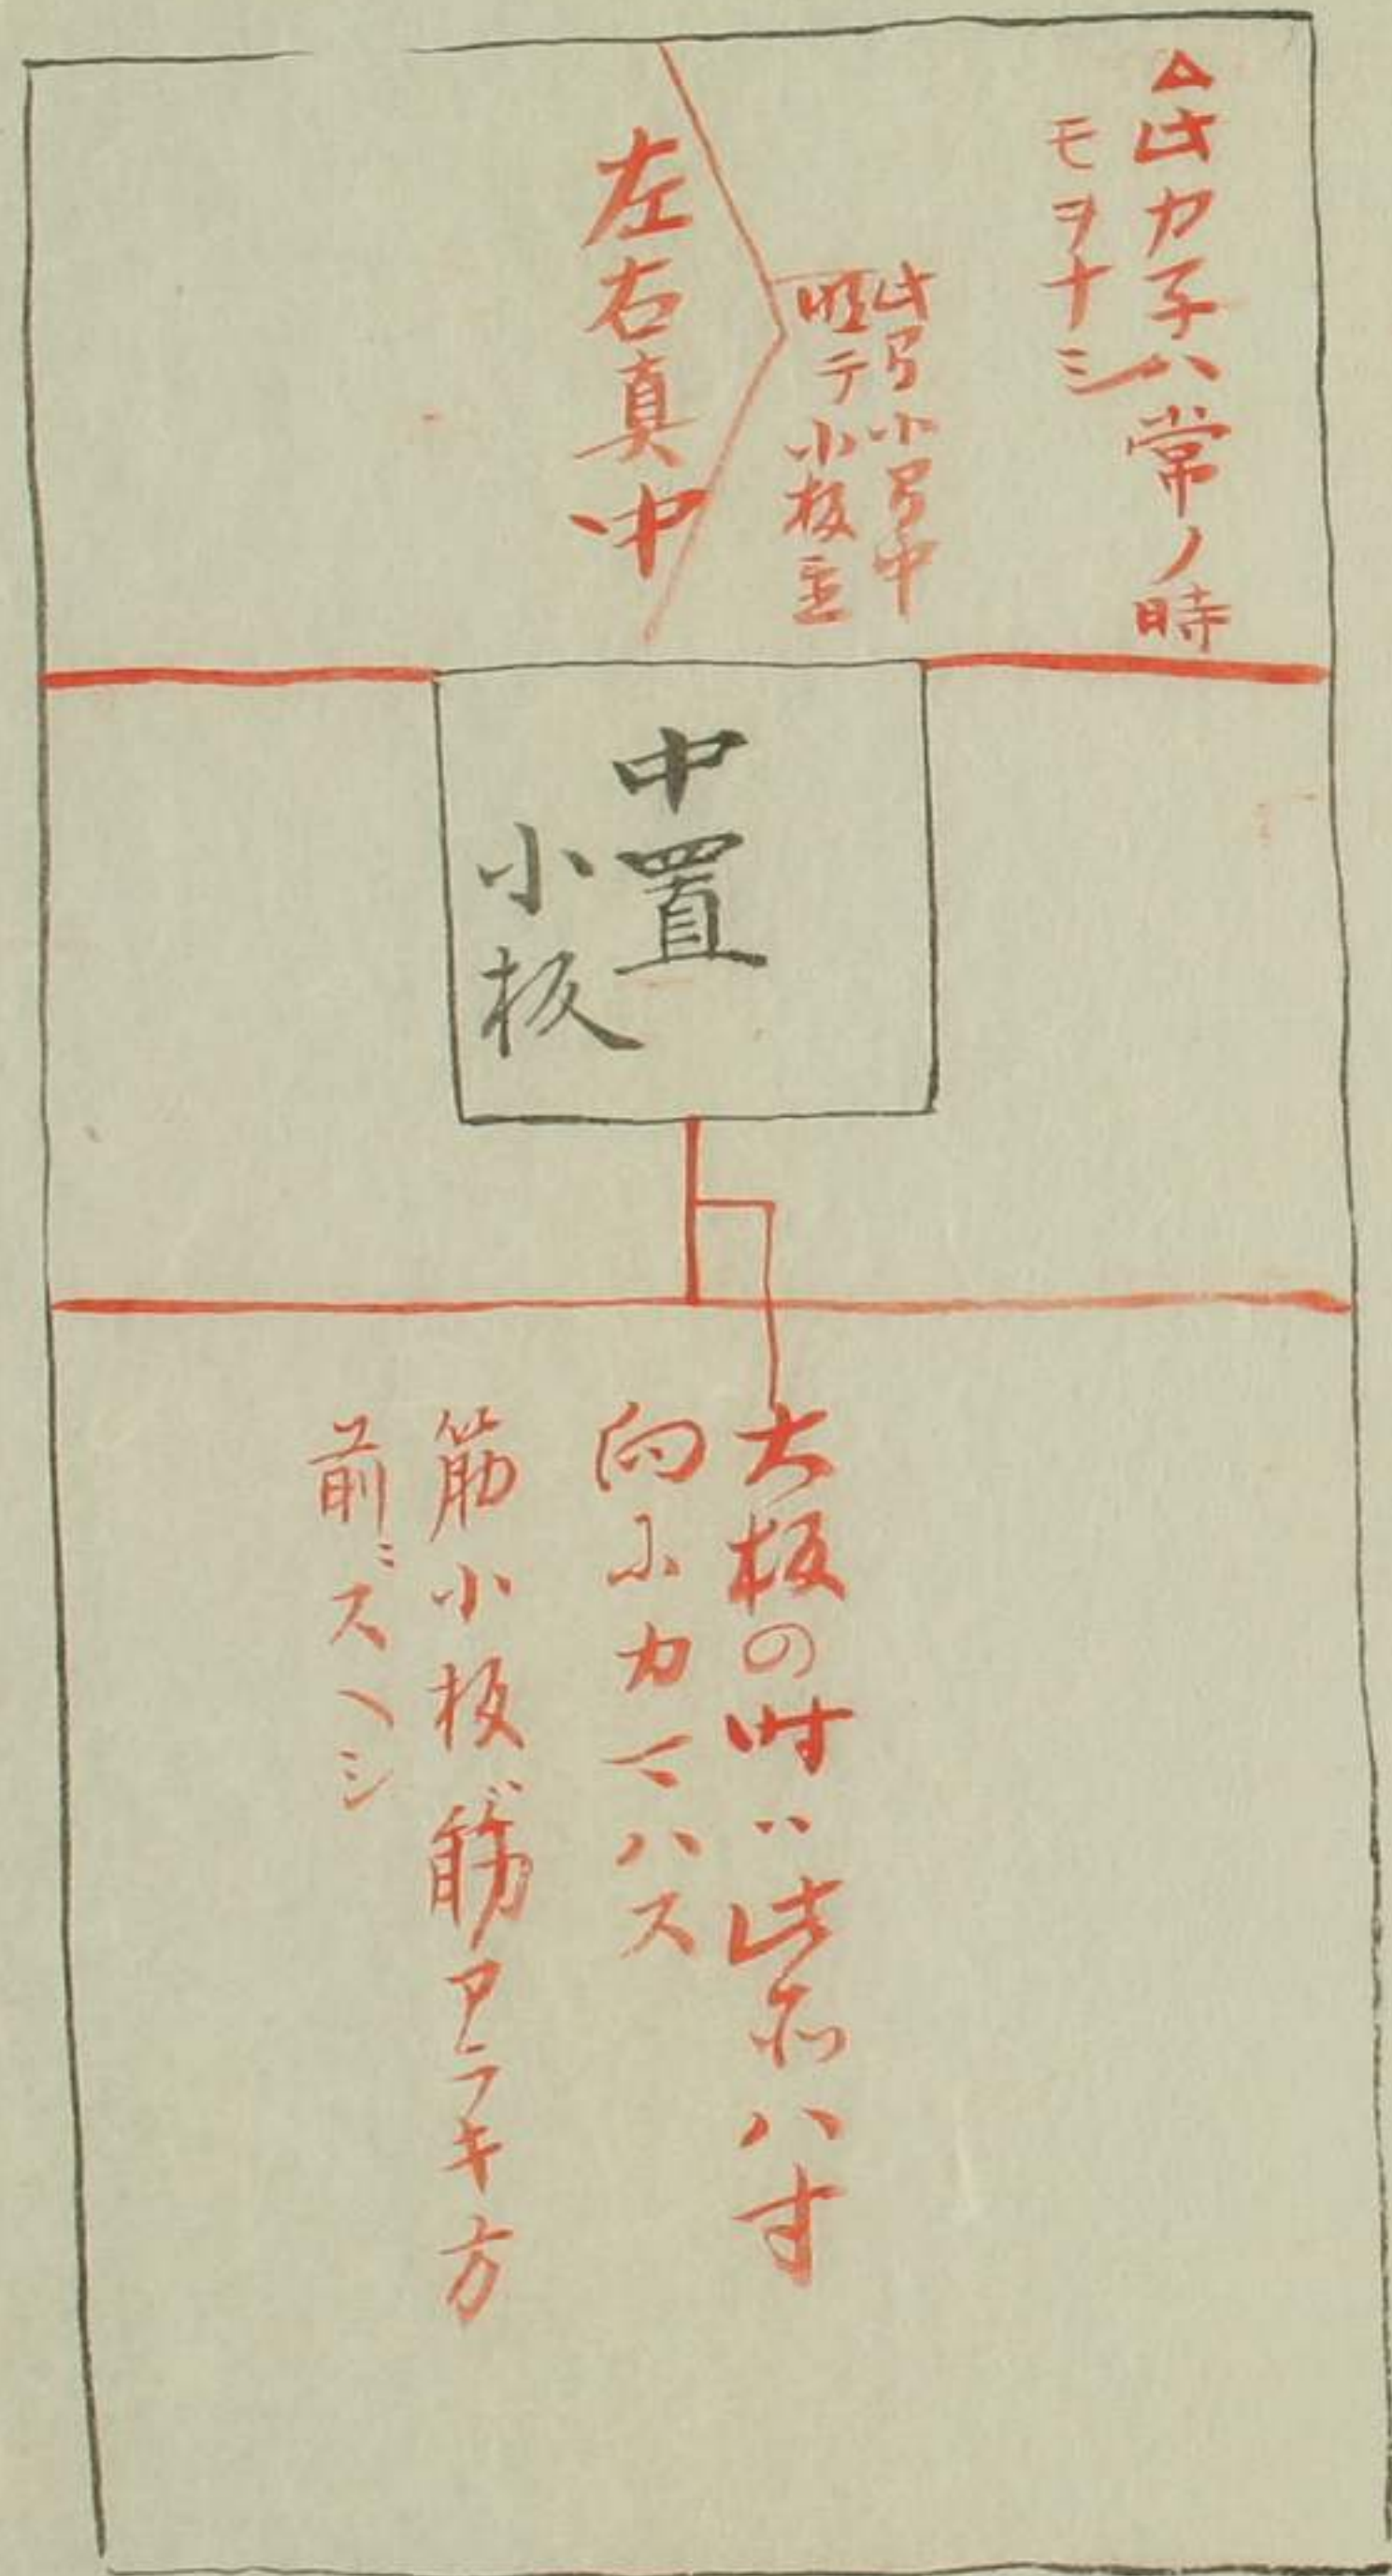 △此カ子ハ常ノ時
モヲナシ
此間小間中
テ小板
左右真中
中置
小板
大板の時ハ此所ハ寸
向ふカマハス
筋小板ハ筋アラキ方
前ニスヘシ